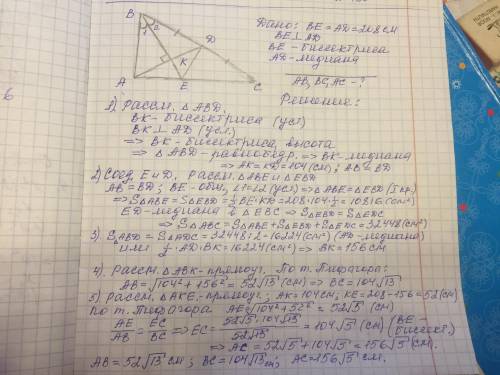 B
1
2
D
K
A
E
C
6
Дано: BE = AD = 208 см
BE ⊥ AD
BE - биссектриса
AD - медиана
AB, BC, AC - ?
Решение:
1) Рассм. △ABD,
BK - биссектриса (усл)
BK ⊥ AD (усл)
=> BK - биссектриса, высота
=> △ABD - равнобедр. => BK - медиана
=> AK = KD = 104 (см), AB = BD
2) Соед. E и D, рассм. △ABE и △EBD
AB = BD; BE - общ, ∠1 = ∠2 (усл) => △ABE = △EBD (I пр.)
=> S△ABE = S△EBD = ½ · BE · KD = 208 · 104 · ½ = 10816 (см²)
ED - медиана в △EBC => S△EBD = S△EDC
=> S△ABC = S△ABE + S△EBD + S△EDC = 32448 (см²)
3) S△ABD = S△ADC = 32448 : 2 = 16224 (см²) (AD - медиана)
или ½ · AD · BK = 16224 (см²) => BK = 156 см
4) Рассм. △ABK - прямоуг. По т. Пифагора:
AB = √104² + 156² = 52√13 (см) => BC = 104√13
5) Рассм. △AKE - прямоуг.; AK = 104 см; KE = 208 - 156 = 52 (см)
По т. Пифагора AE = √104² + 52² = 52√5 (см)
AE/AB = EC/BC => EC = 52√5 · 104√13 / 52√13 = 104√5 (см) (BE - биссект.)
=> AC = 52√5 + 104√5 = 156√5 (см).
AB = 52√13 см; BC = 104√13 см; AC = 156√5 см.